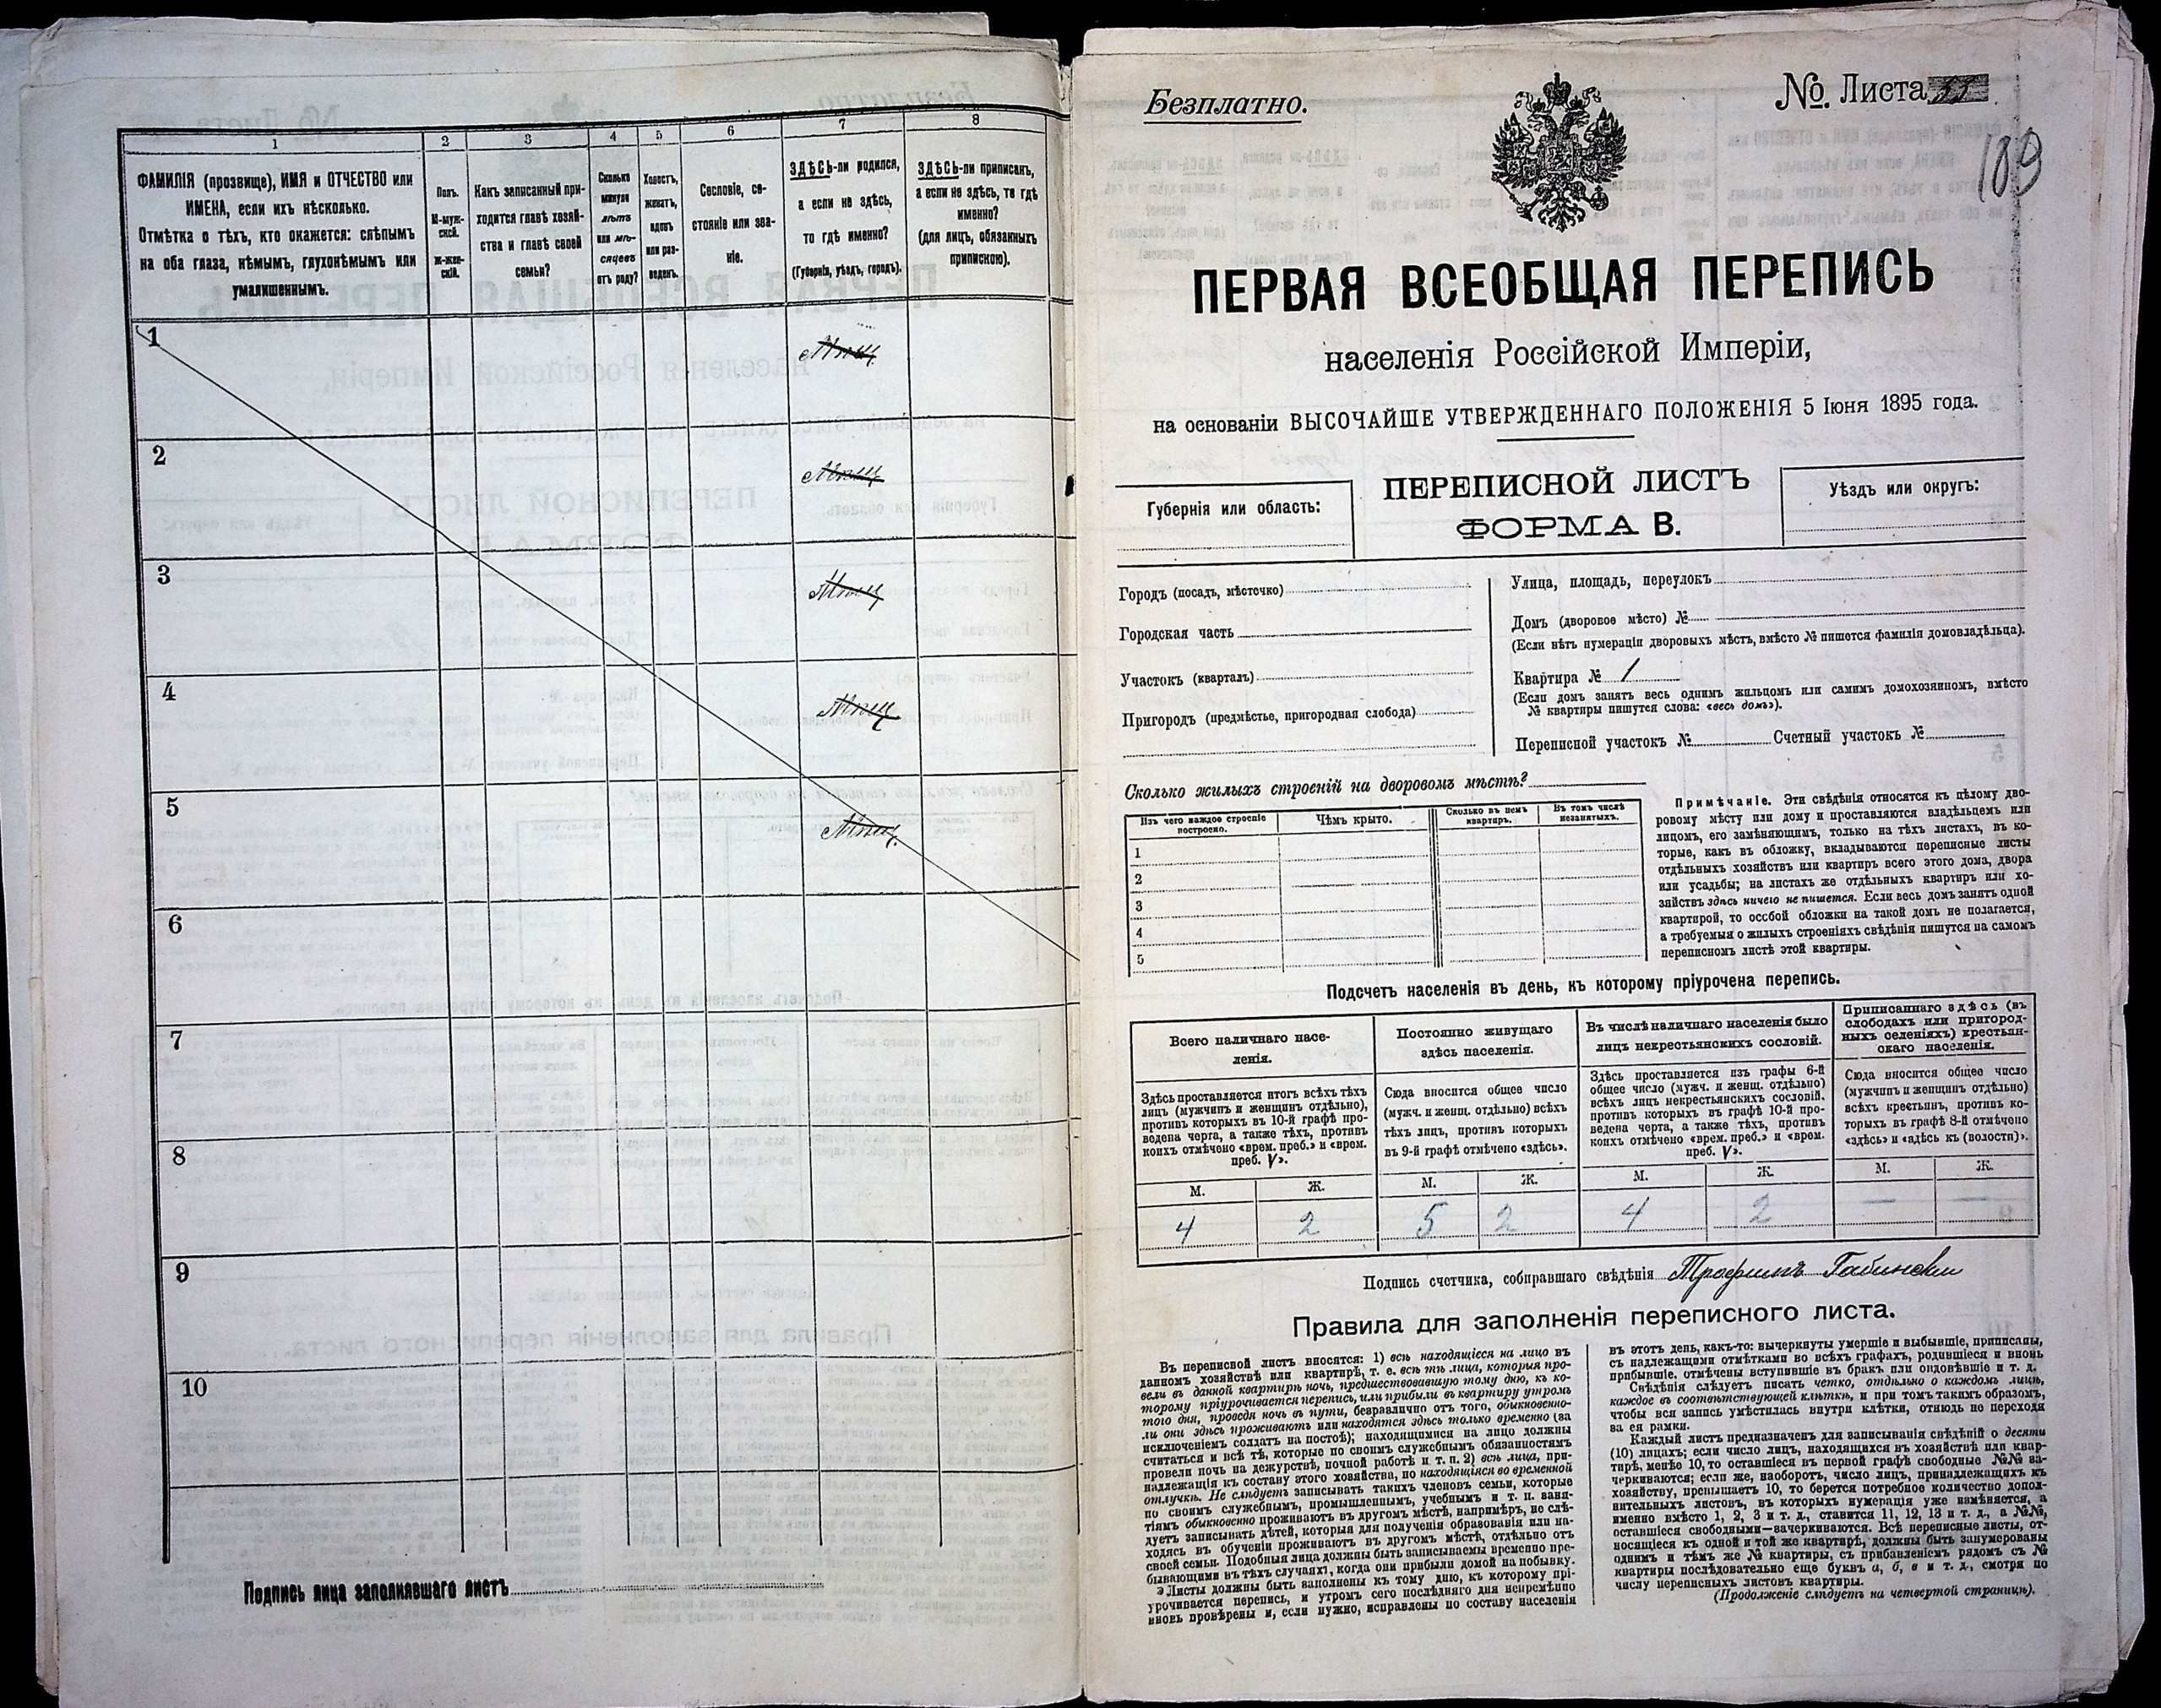 1
2
3
4
5
6
7
8
ФАМИЛІЯ (прозвище), ИМЯ и ОТЧЕСТВО или
ИМЕНА, если ихъ нѣсколько.
Отмѣтка о тѣхъ, кто окажется: слѣпымъ
на оба глаза, нѣмымъ, глухонѣмымъ или
умалишеннымъ.
Полъ.
М-муж-
ской.
Ж-жен-
скій.
Какъ записанный при-
ходится главѣ хозяй-
ства и главѣ своей
семьи?
Сколько
минуло
лѣтъ
или мѣ-
сяцевъ
отъ роду?
Холостъ,
женатъ,
вдовъ
или раз-
веденъ.
Сословіе, со-
стояніе или зва-
ніе.
ЗДѢСЬ-ли родился,
а если не здѣсь,
то гдѣ именно?
(Губернія, уѣздъ, городъ).
ЗДѢСЬ-ли приписан,
а если не здѣсь, то гдѣ
именно?
(для лицъ, обязанныхъ
припискою).
1
2
3
4
5
6
7
8
9
10
Подпись лица заполнявшаго листъ
Безплатно.
№. Листа 55
189
ПЕРВАЯ ВСЕОБЩАЯ ПЕРЕПИСЬ
населенія Россійской Имперіи,
на основаніи ВЫСОЧАЙШЕ УТВЕРЖДЕННАГО ПОЛОЖЕНІЯ 5 Іюня 1895 года.
Губернія или область:
ПЕРЕПИСНОЙ ЛИСТЪ
ФОРМА В.
Уѣздъ или округъ:
Городъ (посадъ, мѣстечко)
Городская часть
Участокъ (кварталъ)
Пригородъ (предмѣстье, пригородная слобода)
Улица, площадь, переулокъ
Домъ (дворовое мѣсто) №
(Если нѣтъ нумераціи дворовыхъ мѣстъ, вмѣсто № пишется фамилія домовладѣльца).
Квартира № 1
(Если домъ занятъ весь однимъ жильцомъ или самимъ домохозяиномъ, вмѣсто
№ квартиры пишутся слова: «весь домъ»).
Переписной участокъ № Счетный участокъ №
Сколько жилыхъ строеній на дворовомъ мѣстѣ?
Изъ чего каждое строеніе
построено.
Чѣмъ крыто.
Сколько въ немъ
квартиръ.
Въ томъ числѣ
незанятыхъ.
1
2
3
4
5
Примѣчаніе. Эти свѣдѣнія относятся къ цѣлому дво-
ровому мѣсту или дому и проставляются владѣльцемъ или
лицомъ, его замѣняющимъ, только на тѣхъ листахъ, въ ко-
торые, какъ въ обложку, вкладываются переписные листы
отдѣльныхъ хозяйствъ или квартиръ всего этого дома, двора
или усадьбы; на листахъ же отдѣльныхъ квартиръ или хо-
зяйствъ здѣсь ничего не пишется. Если весь домъ занятъ одной
квартирой, то особой обложки на такой домъ не полагается,
а требуемыя о жилыхъ строеніяхъ свѣдѣнія пишутся на самомъ
переписномъ листѣ этой квартиры.
Подсчетъ населенія въ день, къ которому пріурочена перепись.
Всего наличнаго насе-
ленія.
Здѣсь проставляется итогъ всѣхъ тѣхъ
лицъ (мужчинъ и женщинъ отдѣльно),
противъ которыхъ въ 10-й графѣ про-
ведена черта, а также тѣхъ, противъ
коихъ отмѣчено «врем. преб.» и «врем.
преб. V».
Постоянно живущаго
здѣсь населенія.
Сюда вносится общее число
(мужч. и женщ. отдѣльно) всѣхъ
тѣхъ лицъ, противъ которыхъ
въ 9-й графѣ отмѣчено «здѣсь».
Въ числѣ наличнаго населенія было
лицъ некрестьянскихъ сословій.
Здѣсь проставляется изъ графы 6-й
общее число (мужч. и женщ. отдѣльно)
всѣхъ лицъ некрестьянскихъ сословій,
противъ которыхъ въ графѣ 10-й про-
ведена черта, а также тѣхъ, противъ
коихъ отмѣчено «врем. преб.» и «врем.
преб. V».
Приписаннаго здѣсь (въ
слободахъ или пригород-
ныхъ селеніяхъ) крестьян-
скаго населенія.
Сюда вносится общее число
(мужчинъ и женщинъ отдѣльно)
всѣхъ крестьян, противъ ко-
торыхъ въ графѣ 8-й отмѣчено
«здѣсь» и «здѣсь къ (волости)».
М. Ж. М. Ж. М. Ж. М. Ж.
4 2 5 2 4 2 — —
Подпись счетчика, собиравшаго свѣдѣнія Трофимъ Габински
Правила для заполненія переписного листа.
Въ переписной листъ вносятся: 1) всѣ находящіеся на лицо въ
данномъ хозяйствѣ или квартирѣ, т. е. всѣ тѣ лица, которыя про-
вели въ данной квартирѣ ночь, предшествовавшую тому дню, къ ко-
торому пріурочивается перепись, или прибыли въ квартиру утромъ
того дня, проведя ночь въ пути, безразлично отъ того, обыкновенно-
ли они здѣсь проживаютъ или находятся здѣсь только временно (за
исключеніемъ солдатъ на постоѣ); находящимися на лицо должны
считаться и всѣ тѣ, которые по своимъ служебнымъ обязанностямъ
провели ночь на дежурствѣ, ночной работѣ и т. п. 2) всѣ лица, при-
надлежащія къ составу этого хозяйства, но находящіяся во временной
отлучкѣ. Не слѣдуетъ записывать такихъ членовъ семьи, которые
по своимъ служебнымъ, промышленнымъ, учебнымъ и т. п. заня-
тіямъ обыкновенно проживаютъ въ другомъ мѣстѣ, напримѣръ, не слѣ-
дуетъ записывать дѣтей, которыя для полученія образованія или на-
ходясь въ обученіи проживаютъ въ другомъ мѣстѣ, отдѣльно отъ
своей семьи. Подобныя лица должны быть записываемы временно пре-
бывающими въ тѣхъ случаяхъ, когда они прибыли домой на побывку.
Листы должны быть заполнены къ тому дню, къ которому прі-
урочивается перепись, и утромъ сего послѣдняго дня непремѣнно
вновь провѣрены и, если нужно, исправлены по составу населенія
въ этотъ день, какъ-то: вычеркнуты умершіе и выбывшіе, приписаны,
съ надлежащими отмѣтками во всѣхъ графахъ, родившіеся и вновь
прибывшіе, отмѣчены вступившіе въ бракъ или овдовѣвшіе и т. д.
Свѣдѣнія слѣдуетъ писать четко, отдѣльно о каждомъ лицѣ,
каждое въ соотвѣтствующей клѣткѣ, и при томъ такимъ образомъ,
чтобы вся запись умѣстилась внутри клѣтки, отнюдь не переходя
за ея рамки.
Каждый листъ предназначенъ для записыванія свѣдѣній о десяти
(10) лицахъ; если число лицъ, находящихся въ хозяйствѣ или квар-
тирѣ, менѣе 10, то оставшіеся въ первой графѣ свободные №№ за-
черкиваются; если же, наоборотъ, число лицъ, принадлежащихъ къ
хозяйству, превышаетъ 10, то берется потребное количество допол-
нительныхъ листовъ, въ которыхъ нумерація уже измѣняется, а
именно вмѣсто 1, 2, 3 и т. д., ставится 11, 12, 13 и т. д., а №№,
оставшіеся свободными—вачеркиваются. Всѣ переписные листы, от-
носящіеся къ одной и той же квартирѣ, должны быть занумерованы
однимъ и тѣмъ же № квартиры, съ прибавленіемъ рядомъ съ №
квартиры послѣдовательно еще буквъ а, б, в и т. д., смотря по
числу переписныхъ листовъ квартиры.
(Продолженіе слѣдуетъ на четвертой страницѣ).